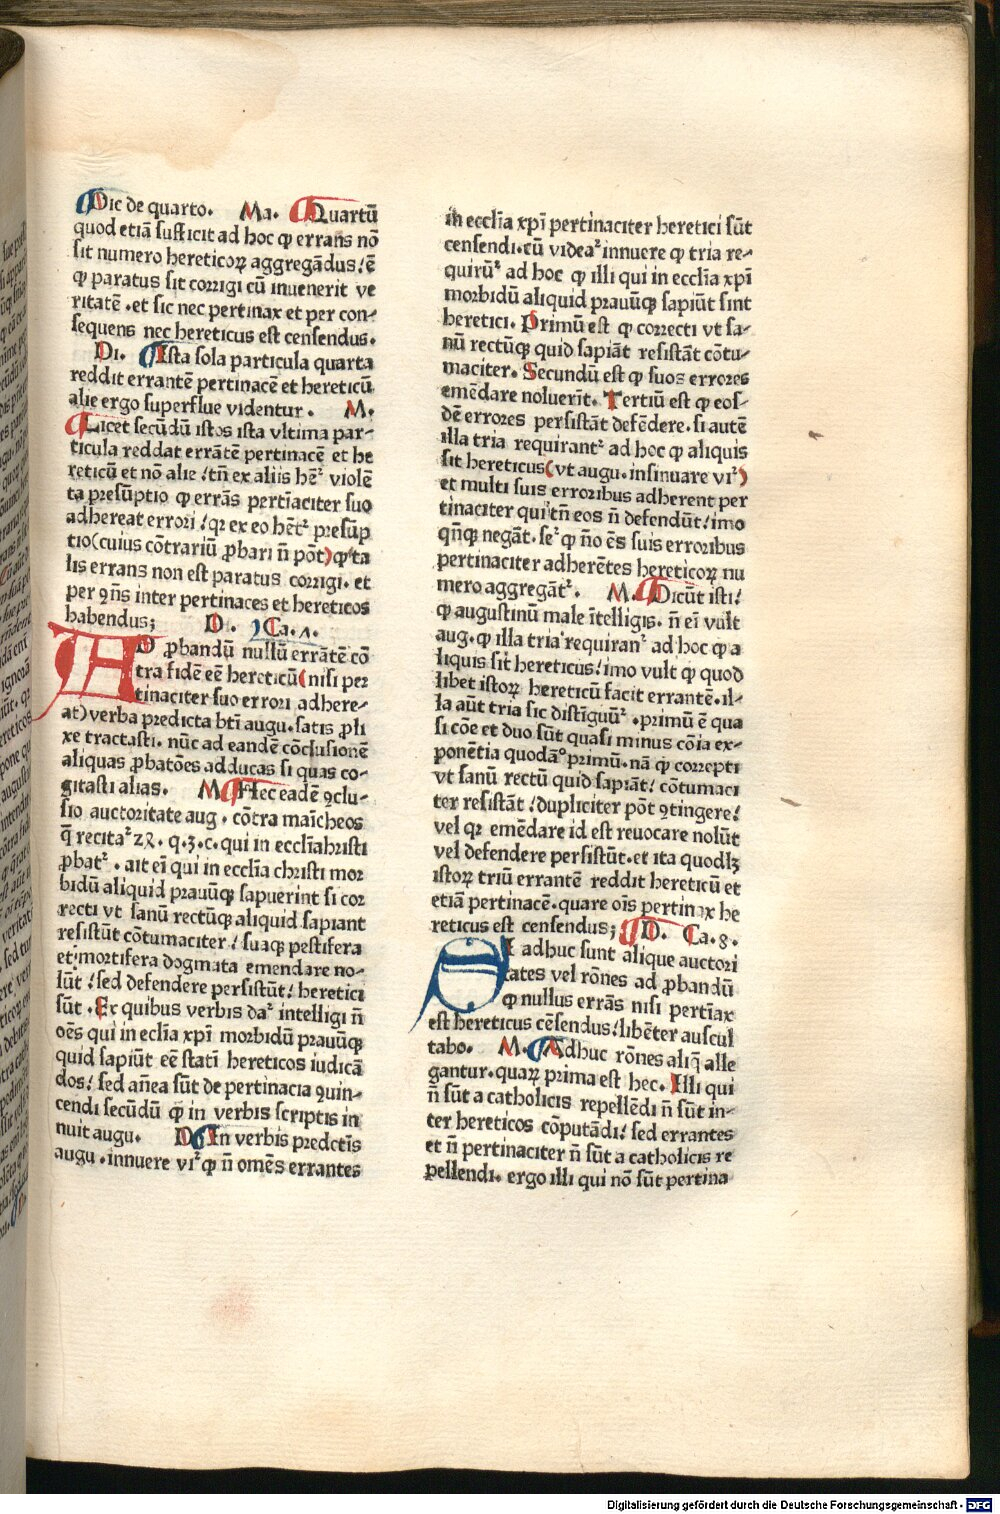 Dic de quarto. Ma. Quartū
quod etiā sufficit ad hoc ꝙ errans nō
sit numero hereticoꝝ aggregādus! ē
ꝙ paratus sit corrigi cū inuenerit ve
ritatē . et sic nec pertinax et per con-
sequens nec hereticus est censendus.
Di. Ista sola particula quarta
reddit errantē pertinacē et hereticū
alie ergo superflue videntur . M.
Licet secūdū istos ista vltima par-
ticula reddat errātē pertinacē et he
reticū et nō alie! tn̄ ex aliis hꝫ violē
ta presūptio ꝙ errās pertīaciter suo
adhereat errori! qꝛ ex eo hꝫ presūp
tio(cuius cōtrariū ꝓbari n̄ pōt)ꝙ ta
lis errans non est paratus corrigi. et
per ꝯn̄s inter pertinaces et hereticos
habendus; D. Ca. 7.
AD ꝓbandū nullū errātē cō
tra fidē eē hereticū(nisi per
tinaciter suo errori adhere-
at)verba predicta bt̄i augu. satis ꝓli
xe tractasti. nūc ad eandē cōclusionē
aliquas ꝓbatōes adducas si quas co-
gitasti alias. M. Hec eadē ꝯclu-
sio auctoritate aug . cōtra maīcheos
q̄ recitaᷣ 24 . q. 3. c. qui in eccl̄iahristi
ꝓbatᷣ . ait ei qui in eccl̄ia christi mor
bidū aliquid prauūqꝫ sapuerint si cor
recti vt sanū rectūqꝫ aliquid sapiant
resistūt cōtumaciter! suaqꝫ pestifera
et mortifera dogmata emendare no-
lūt! sed defendere persistūt! heretici
sūt . Ex quibus verbis daᷣ intelligi n̄
oēs qui in ecl̄ia xp̄i morbidū prauūqꝫ
quid sapiūt eē statī hereticos iudicā
dos! sed an̄ea sūt de pertinacia ꝯuin-
cendi secūdū ꝙ in verbis scriptis in
nuit augu. D. In verbis predc̄tis
augu . innuere viᷣ ꝙ n̄ omēs errantes
in eccl̄ia xp̄i pertinaciter heretici sūt
censendi. cū videaᷣ innuere ꝙ tria re-
quirūᷣ ad hoc ꝙ illi qui in eccl̄ia xp̄i
morbidū aliquid prauūqꝫ sapiūt sint
heretici. Primū est ꝙ correcti vt sa-
nū rectūqꝫ quid sapiāt resistāt cōtu-
maciter. Secundū est ꝙ suos errores
emēdare noluerīt. Tertiū est ꝙ eos-
dē errores persistāt defēdere. si autē
illa tria requirantᷣ ad hoc ꝙ aliquis
sit hereticus(vt augu. insinuare viᷣ)
et multi suis erroribus adherent per
tinaciter qui tn̄ eos n̄ defendūt! imo
qn̄qꝫ negāt. seᷣ ꝙ no ēs suis erroribus
pertinaciter adherētes hereticoꝝ nu
mero aggregātᷣ. M. Dicūt isti!
ꝙ augustinū male ītelligis. n̄ ei vult
aug. ꝙ illa tria requiranᷣ ad hoc ꝙ a
liquis sit hereticus! imo vult ꝙ quod
libet istoꝝ hereticū facit errantē. il-
la aūt tria sic distīguūᷣ . primū ē qua
si cōe et duo sūt quasi minus cōia ex-
ponētia quodāo primū. nā ꝙ correpti
vt sanū rectū quid sapiāt! cōtumaci
ter resistāt! dupliciter pōt ꝯtingere!
vel qꝛ emēdare id est reuocare nolūt
vel defendere persistūt. et ita quodlꝫ
istoꝝ triū errantē reddit hereticū et
etiā pertinacē. quare ois pertinax he
reticus est censendus; D. Ca. 8.
SI adhuc sunt alique auctori
tates vel rōnes ad ꝓbandū
ꝙ nullus errās nisi pertīax
est hereticus cēsendus! libēter auscul
tabo. M. Adhuc rōnes aliq̄ alle
gantur. quaꝝ prima est hec. Illi qui
n̄ sūt a catholicis repellēdi n̄ sūt in-
ter hereticos cōputādi! sed errantes
et n̄ pertinaciter n̄ sūt a catholicis re
pellendi. ergo illi qui nō sūt pertina
Digitalisierung gefördert durch die Deutsche Forschungsgemeinschaft - DFG